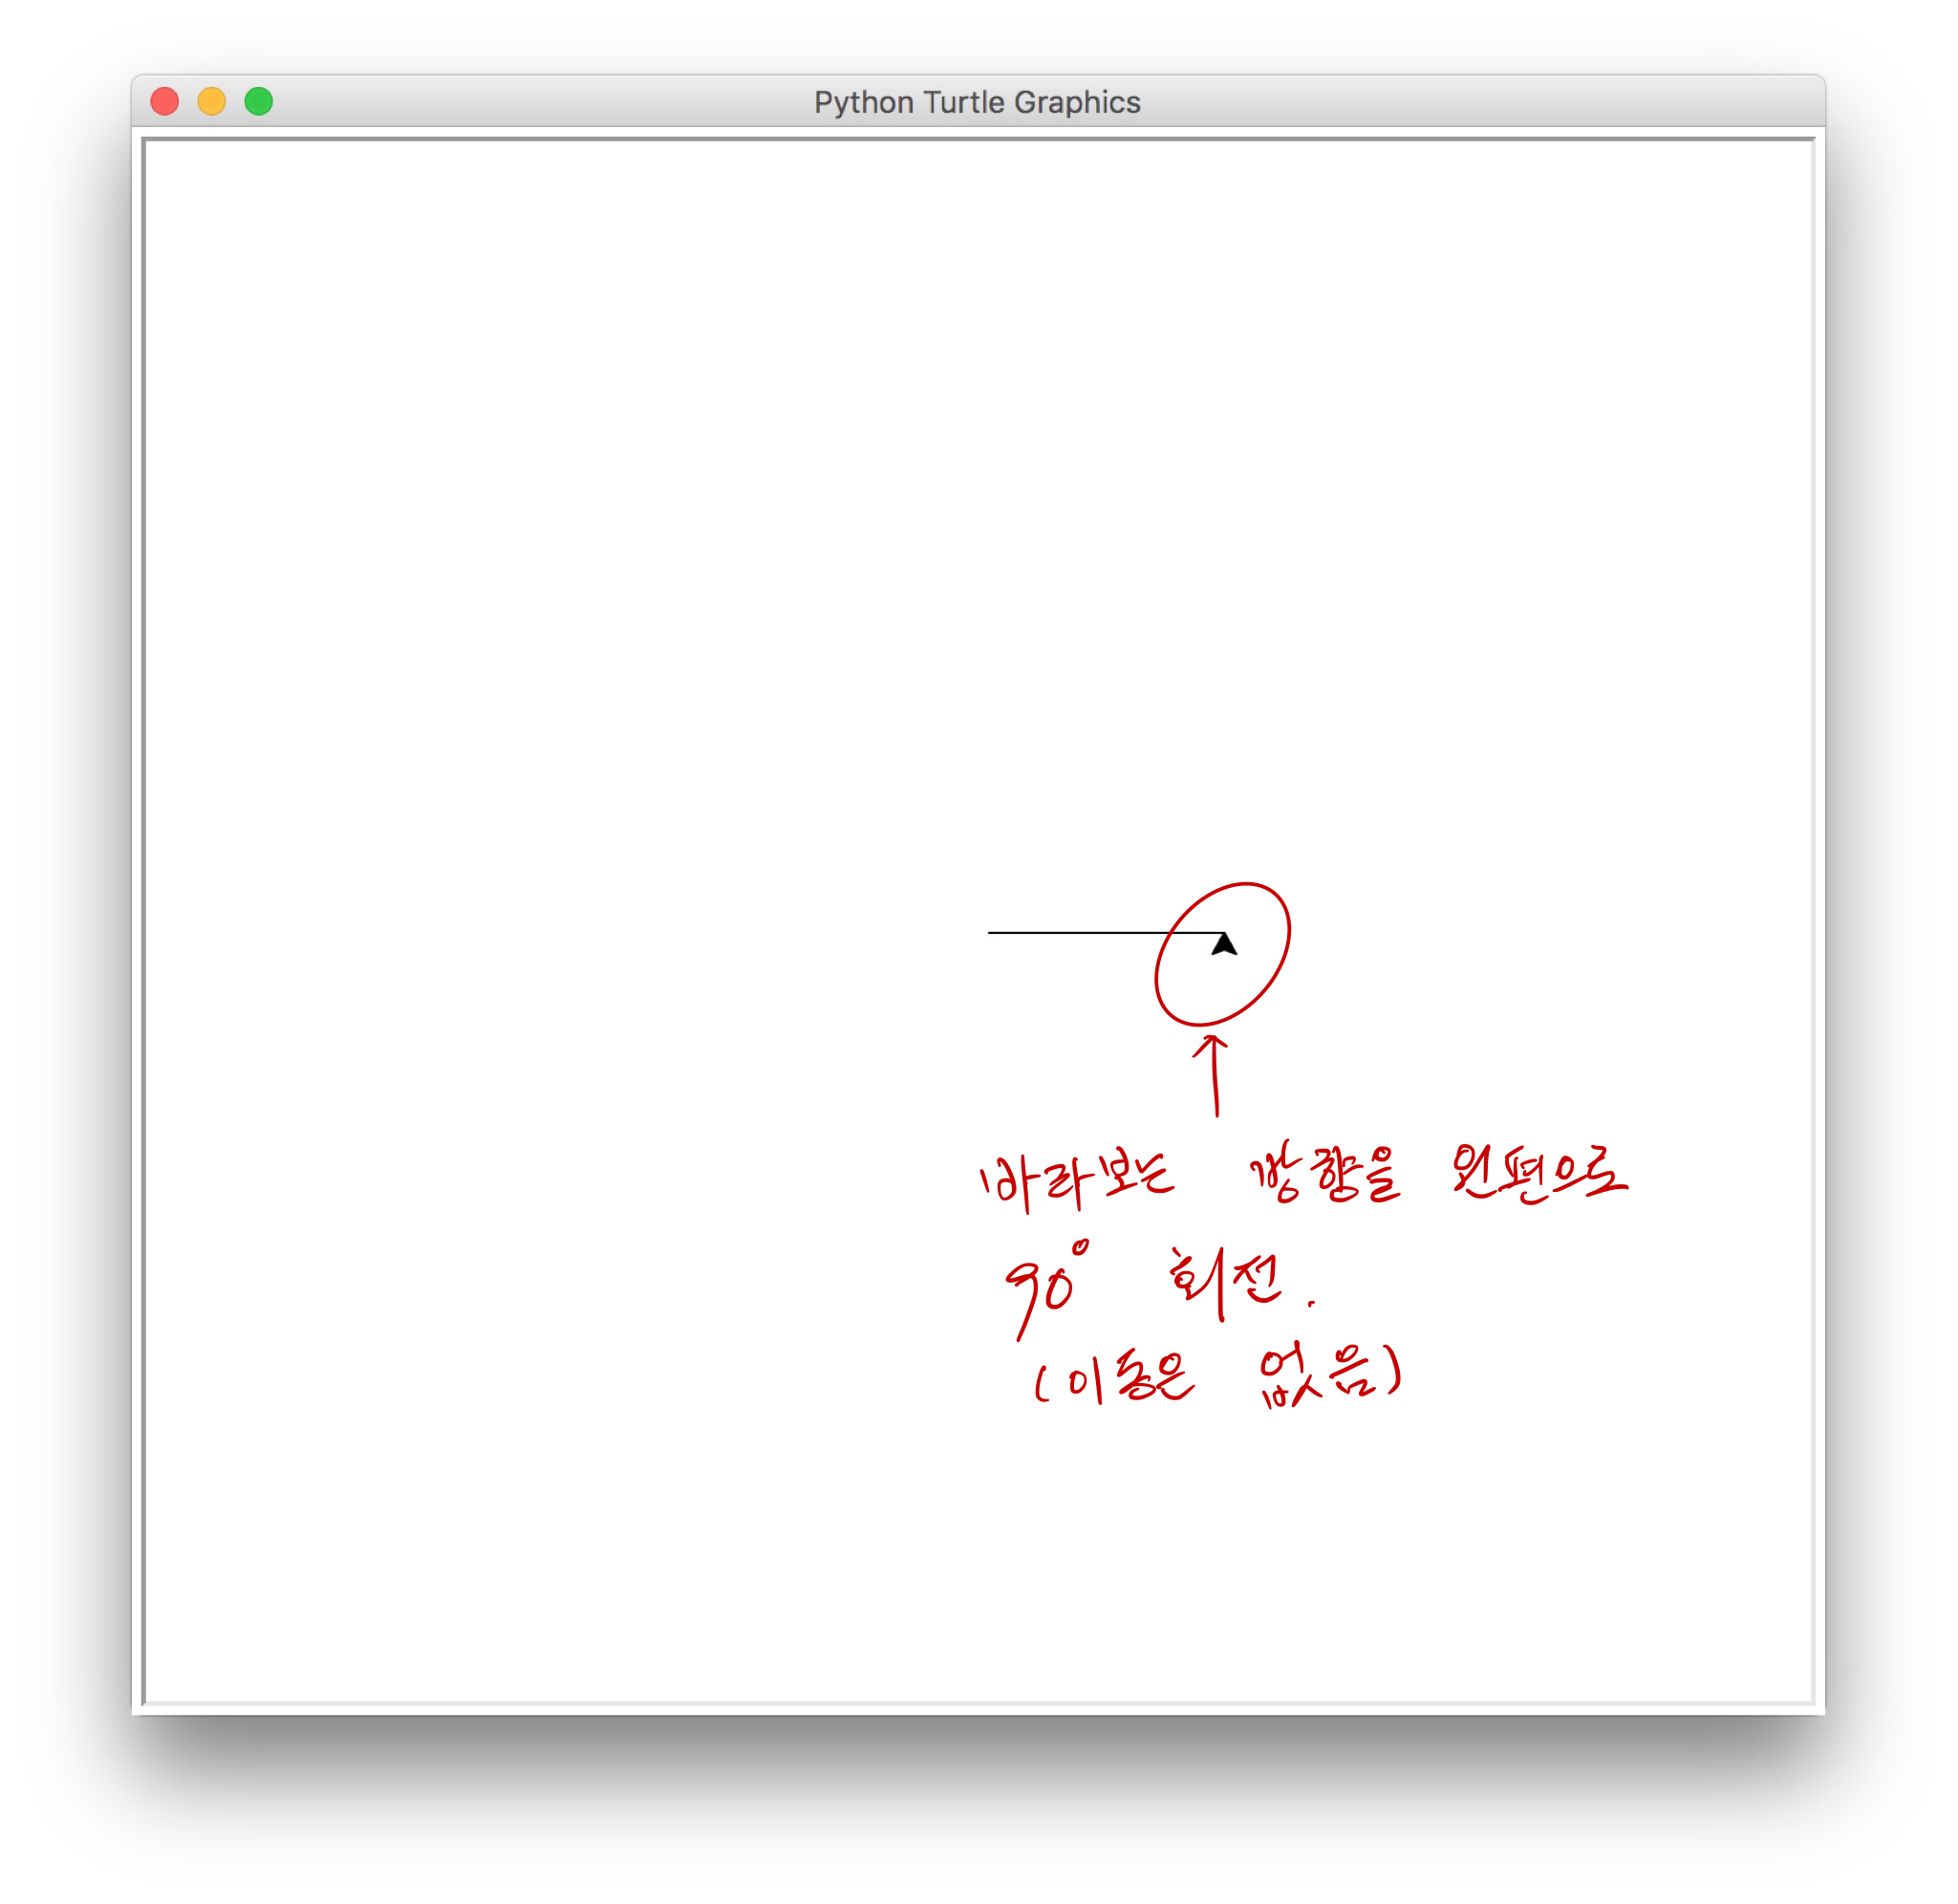 Python Turtle Graphics
바라보는 방향을 왼편으로
90° 회전.
(이동은 없음)